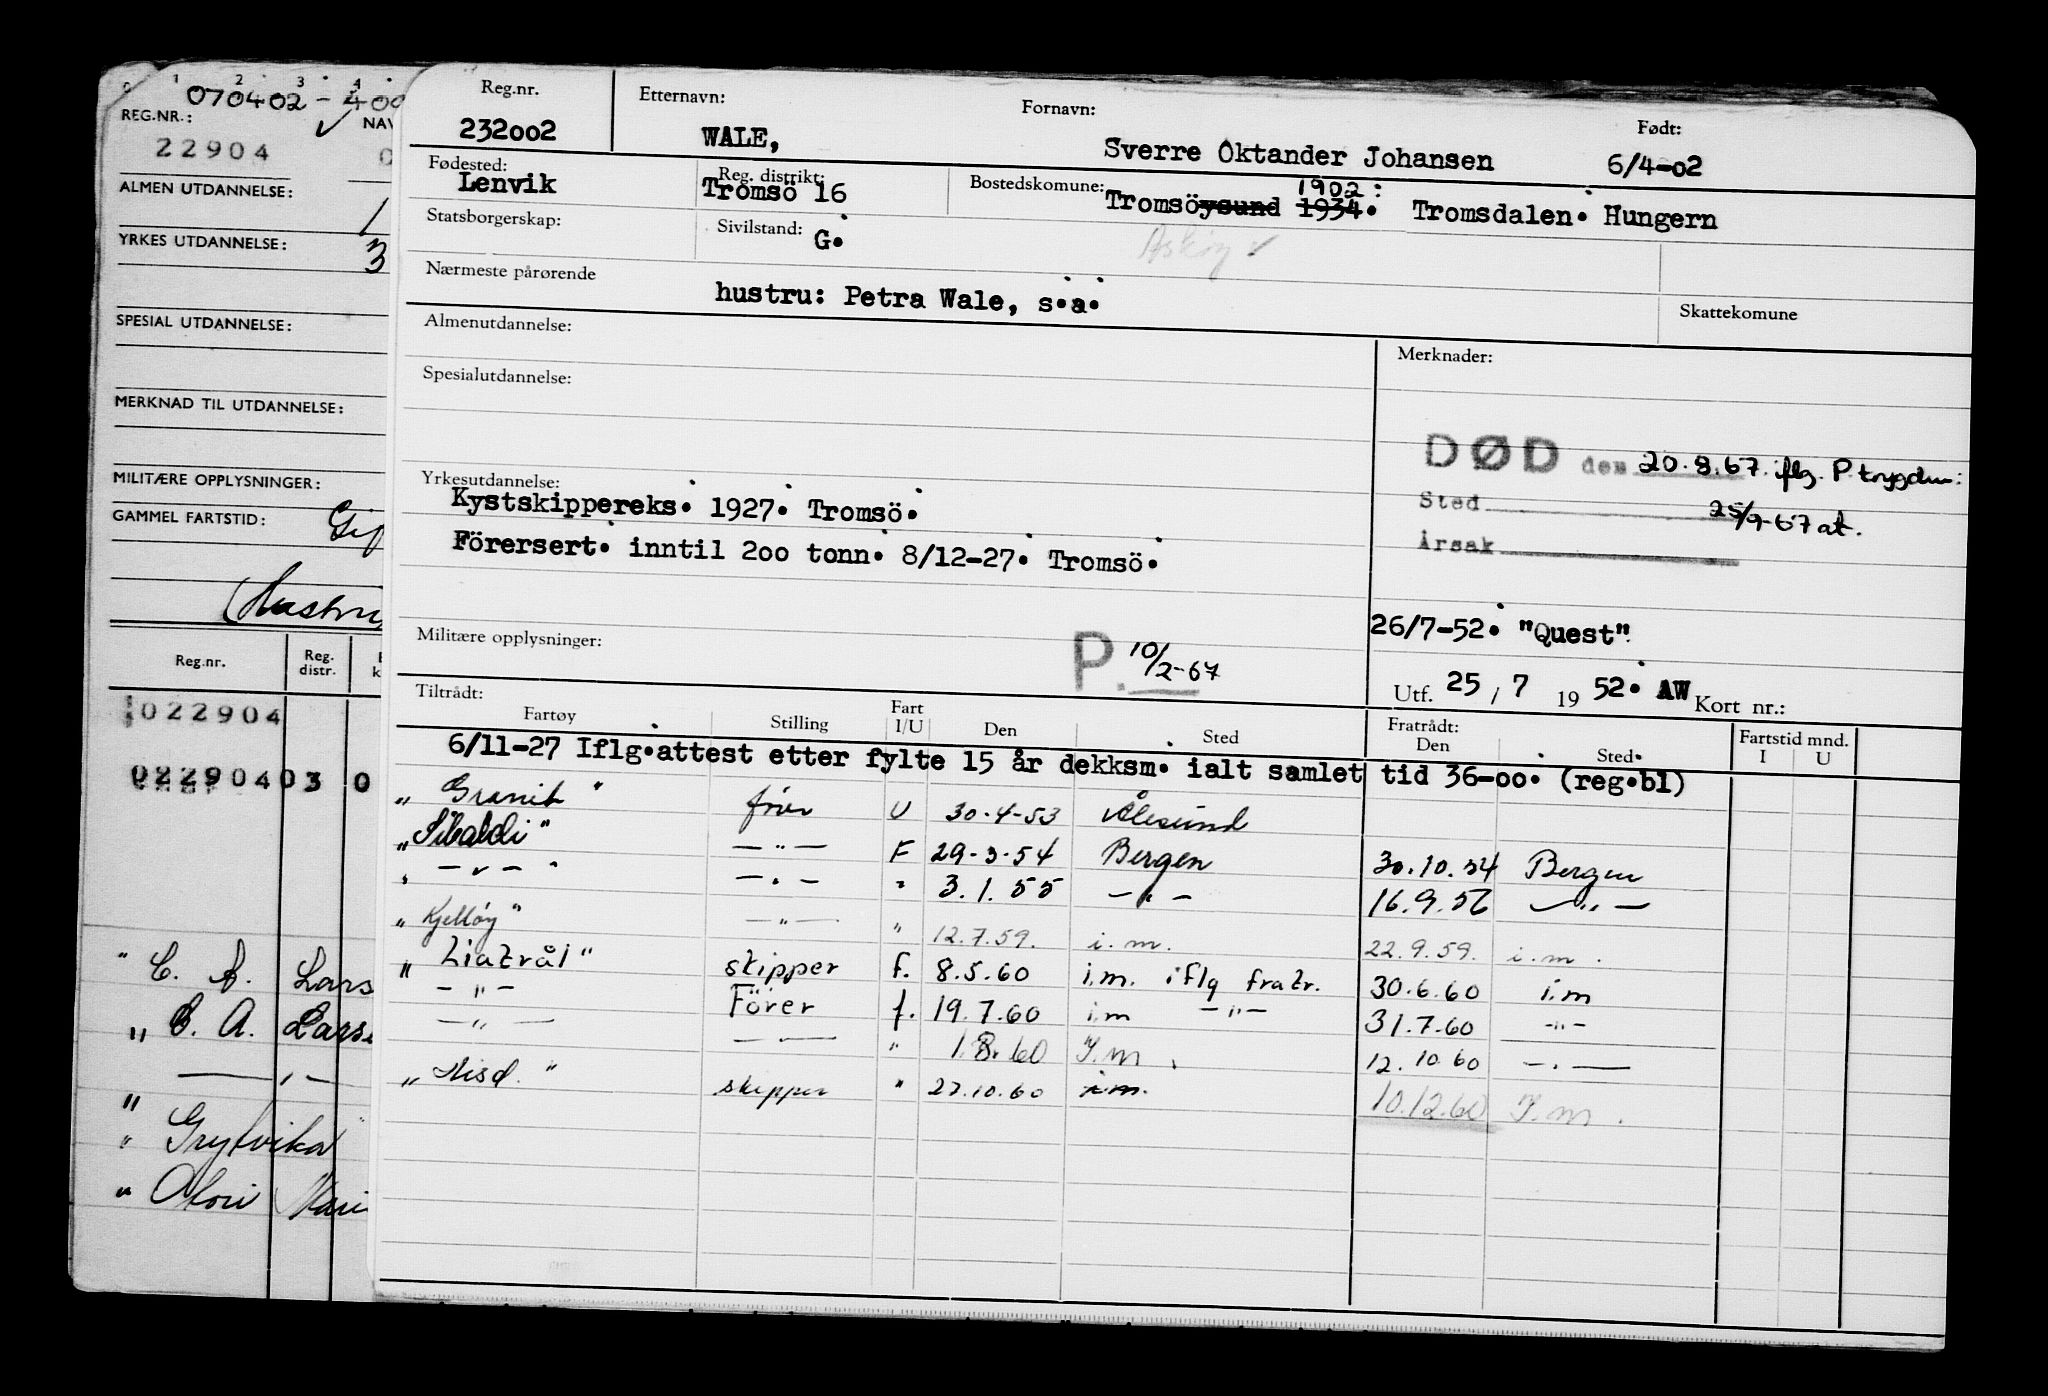 0 1 2 3 4
070402 - 400
REG.NR.: ✓ NAV
22904 0
ALMEN UTDANNELSE: 1
YRKES UTDANNELSE: 3
SPESIAL UTDANNELSE:
MERKNAD TIL UTDANNELSE:
MILITÆRE OPPLYSNINGER:
GAMMEL FARTSTID: Gif
(Hustru
Reg.nr. Reg. distr. k
022904
02290403 0
" C. A. Lars
" C. A. Larse
— " —
"
" Grytvika
" Mari
Reg.nr. Etternavn: Fornavn: Født:
232002 WALE, Sverre Oktander Johansen 6/4-02
Fødested: Reg. distrikt: Bostedskomune: 1902:
Lenvik Tromsö 16 Tromsöysund 1934. Tromsdalen. Hungern
Statsborgerskap: Sivilstand: G. Askøy ✓
Nærmeste pårørende
hustru: Petra Wale, s.a.
Skattekomune
Almenutdannelse:
Merknader:
Spesialutdannelse:
DØD den 20.8.67. iflg. P.trygden:
Sted 25/9-67 at.
Årsak
Yrkesutdannelse:
Kystskippereks. 1927. Tromsö.
Förersert. inntil 200 tonn. 8/12-27. Tromsö.
26/7-52. "Quest".
Militære opplysninger: P. 10/2-67
Utf. 25 / 7 19 52. AW Kort nr.:
Tiltrådt: Fratrådt:
Fartøy Stilling Fart I/U Den Sted Den Sted. Fartstid mnd. I U
6/11-27 Iflg.attest etter fylte 15 år dekksm. ialt samlet tid 36-00. (reg.bl)
" Granit " förer U 30-4-53 Ålesund
" Sibaldi " — " — F 29-3-54 Bergen 30.10.54 Bergen
" — " — " — " — " 3.1.55 — " — 16.9.56 — " —
" Kjelløy " — " — " 12.7.59. i.m. 22.9.59. i.m.
" Liatrål " skipper f. 8.5.60 i.m. iflg fratr. 30.6.60 i.m
— " — Förer f. 19.7.60 i.m — " — 31.7.60 — " —
— " — — " — " 1.8.60 I.m. 12.10.60 — " —
" skipper " 27.10.60 i.m. 10.12.60 I.m.